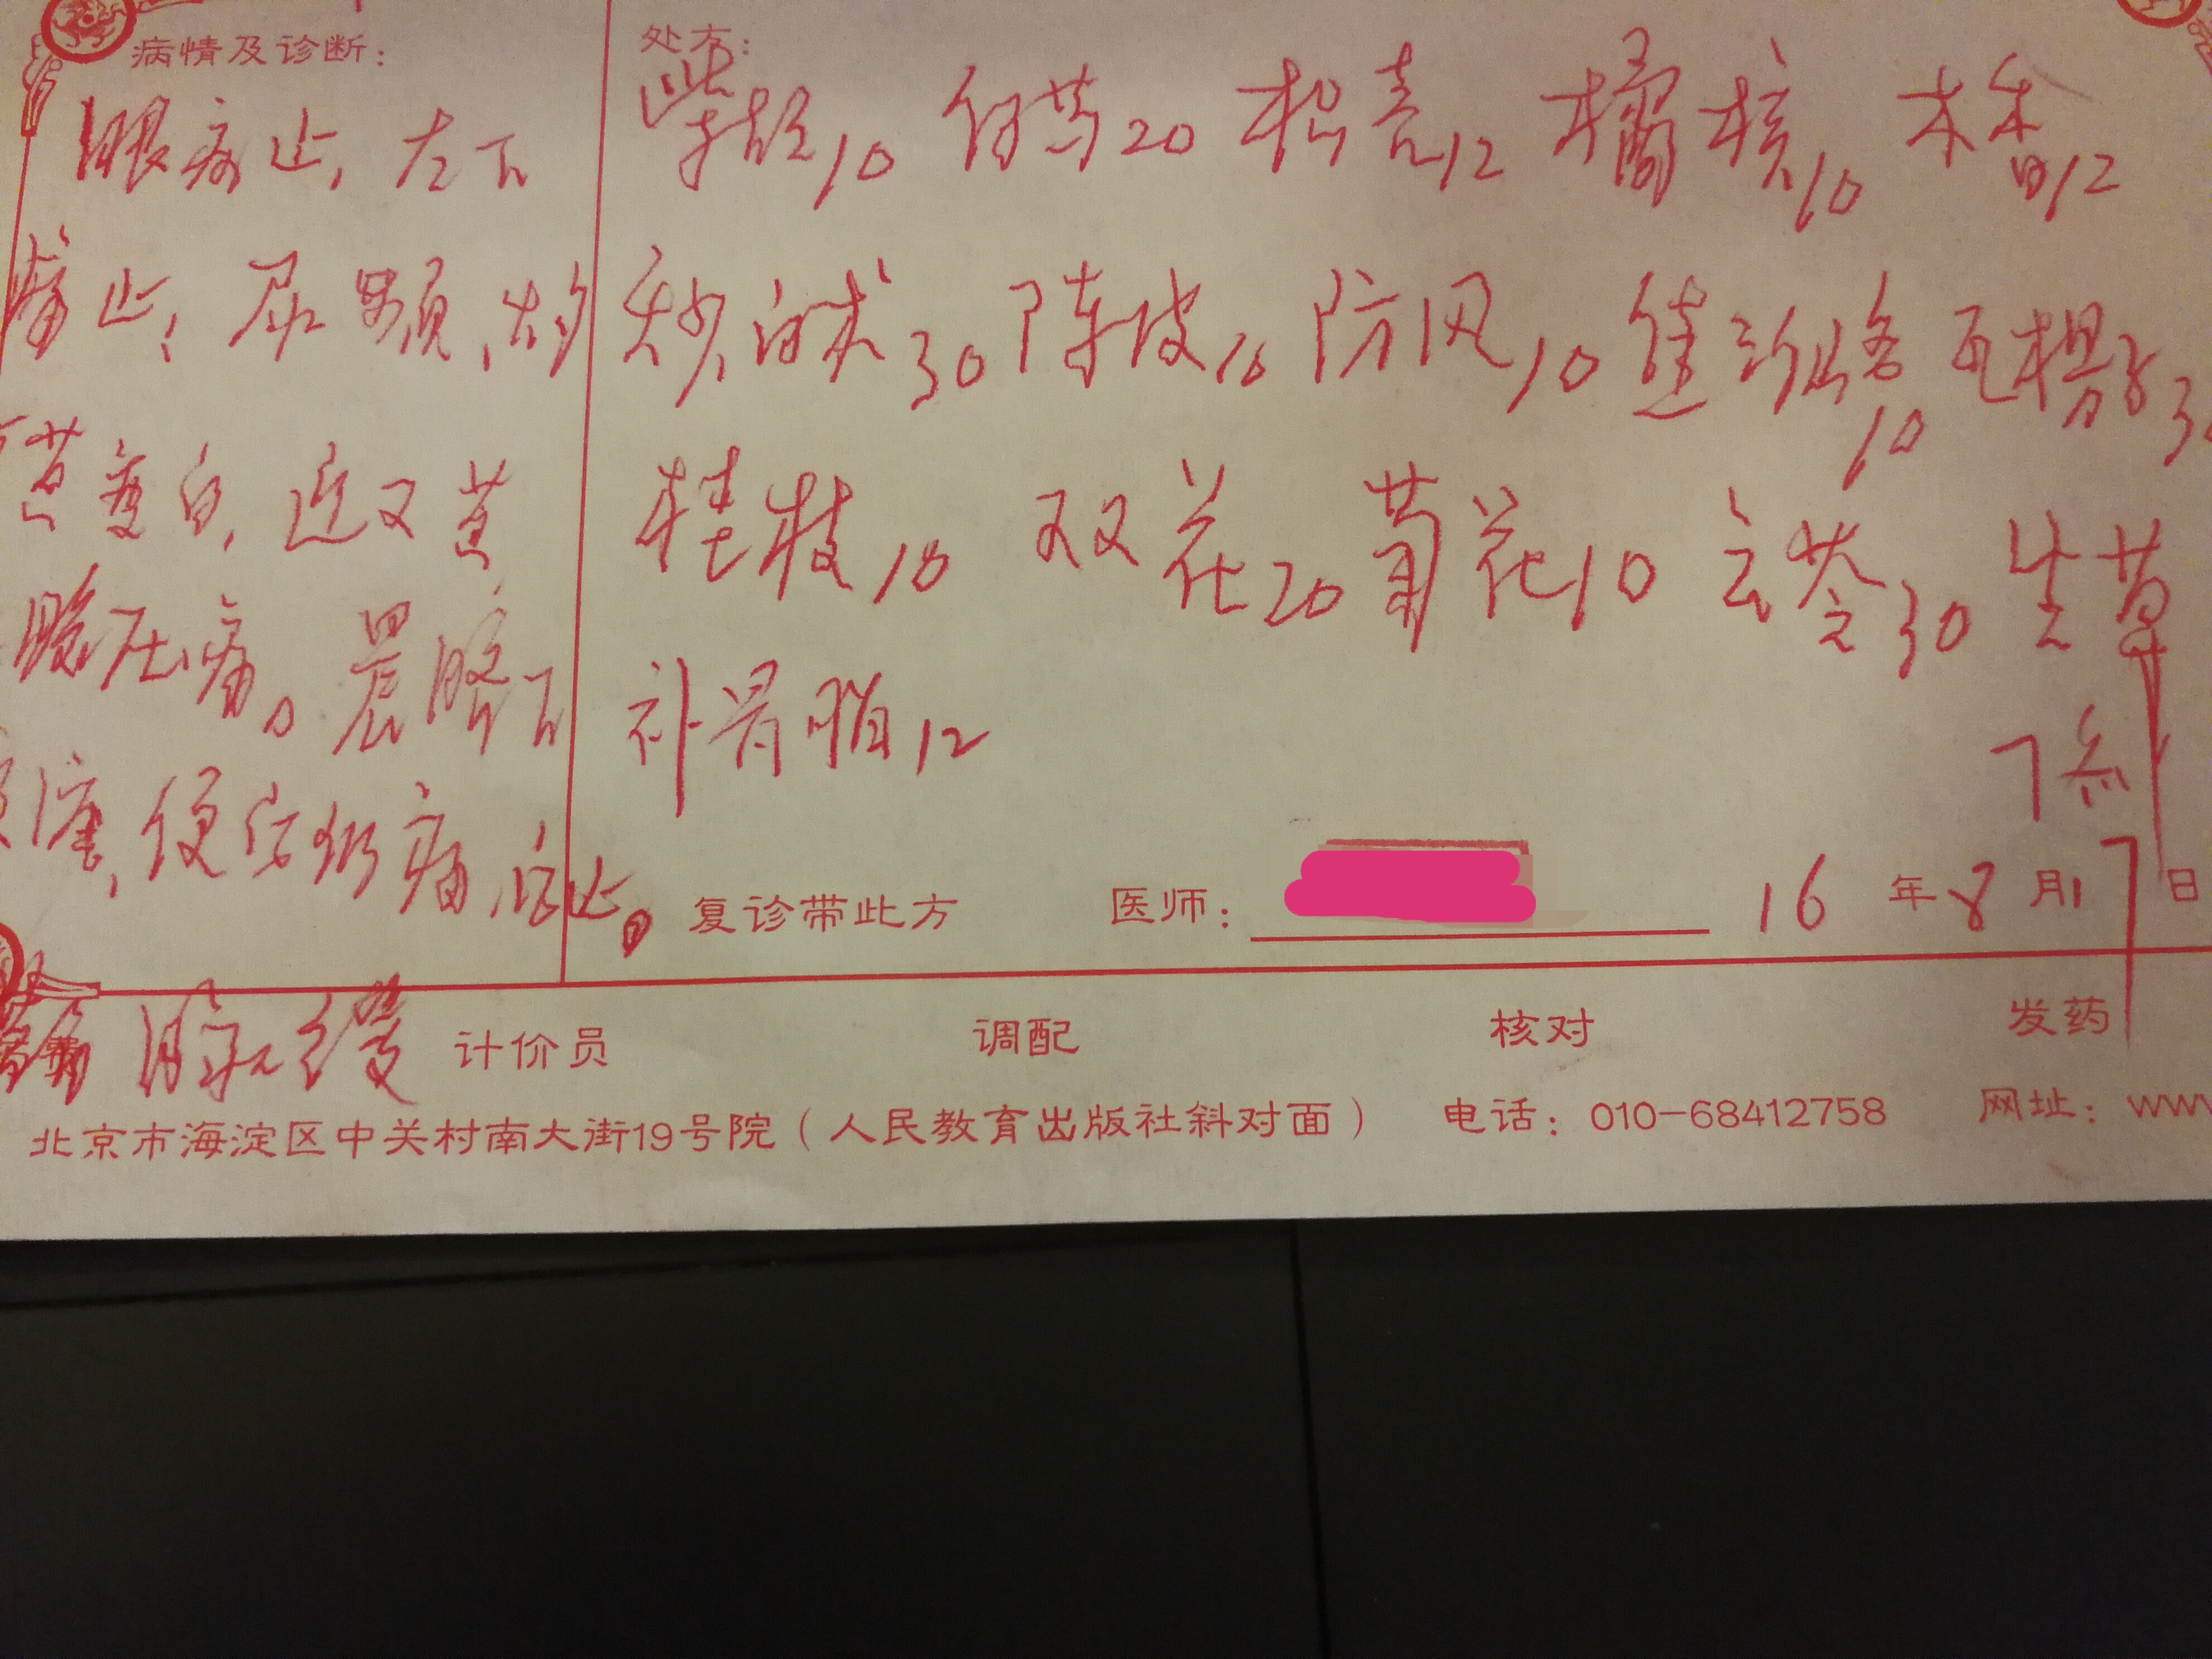 病情及诊断：
眼痛止，左下
痛止，尿频，
黄变白，近又黄
腹压痛。晨脐下
便后仍痛，
脉缓
处方：
柴胡10 白芍20 枳壳12 橘核10 木香12
炒白术30 陈皮10 防风10 焦三仙各10 瓦楞子3
桂枝10 双花20 菊花10 云苓30 生草
补骨脂12
7剂
复诊带此方 医师： 16年8月17日
计价员 调配 核对 发药
北京市海淀区中关村南大街19号院（人民教育出版社斜对面） 电话：010-68412758 网址：ww